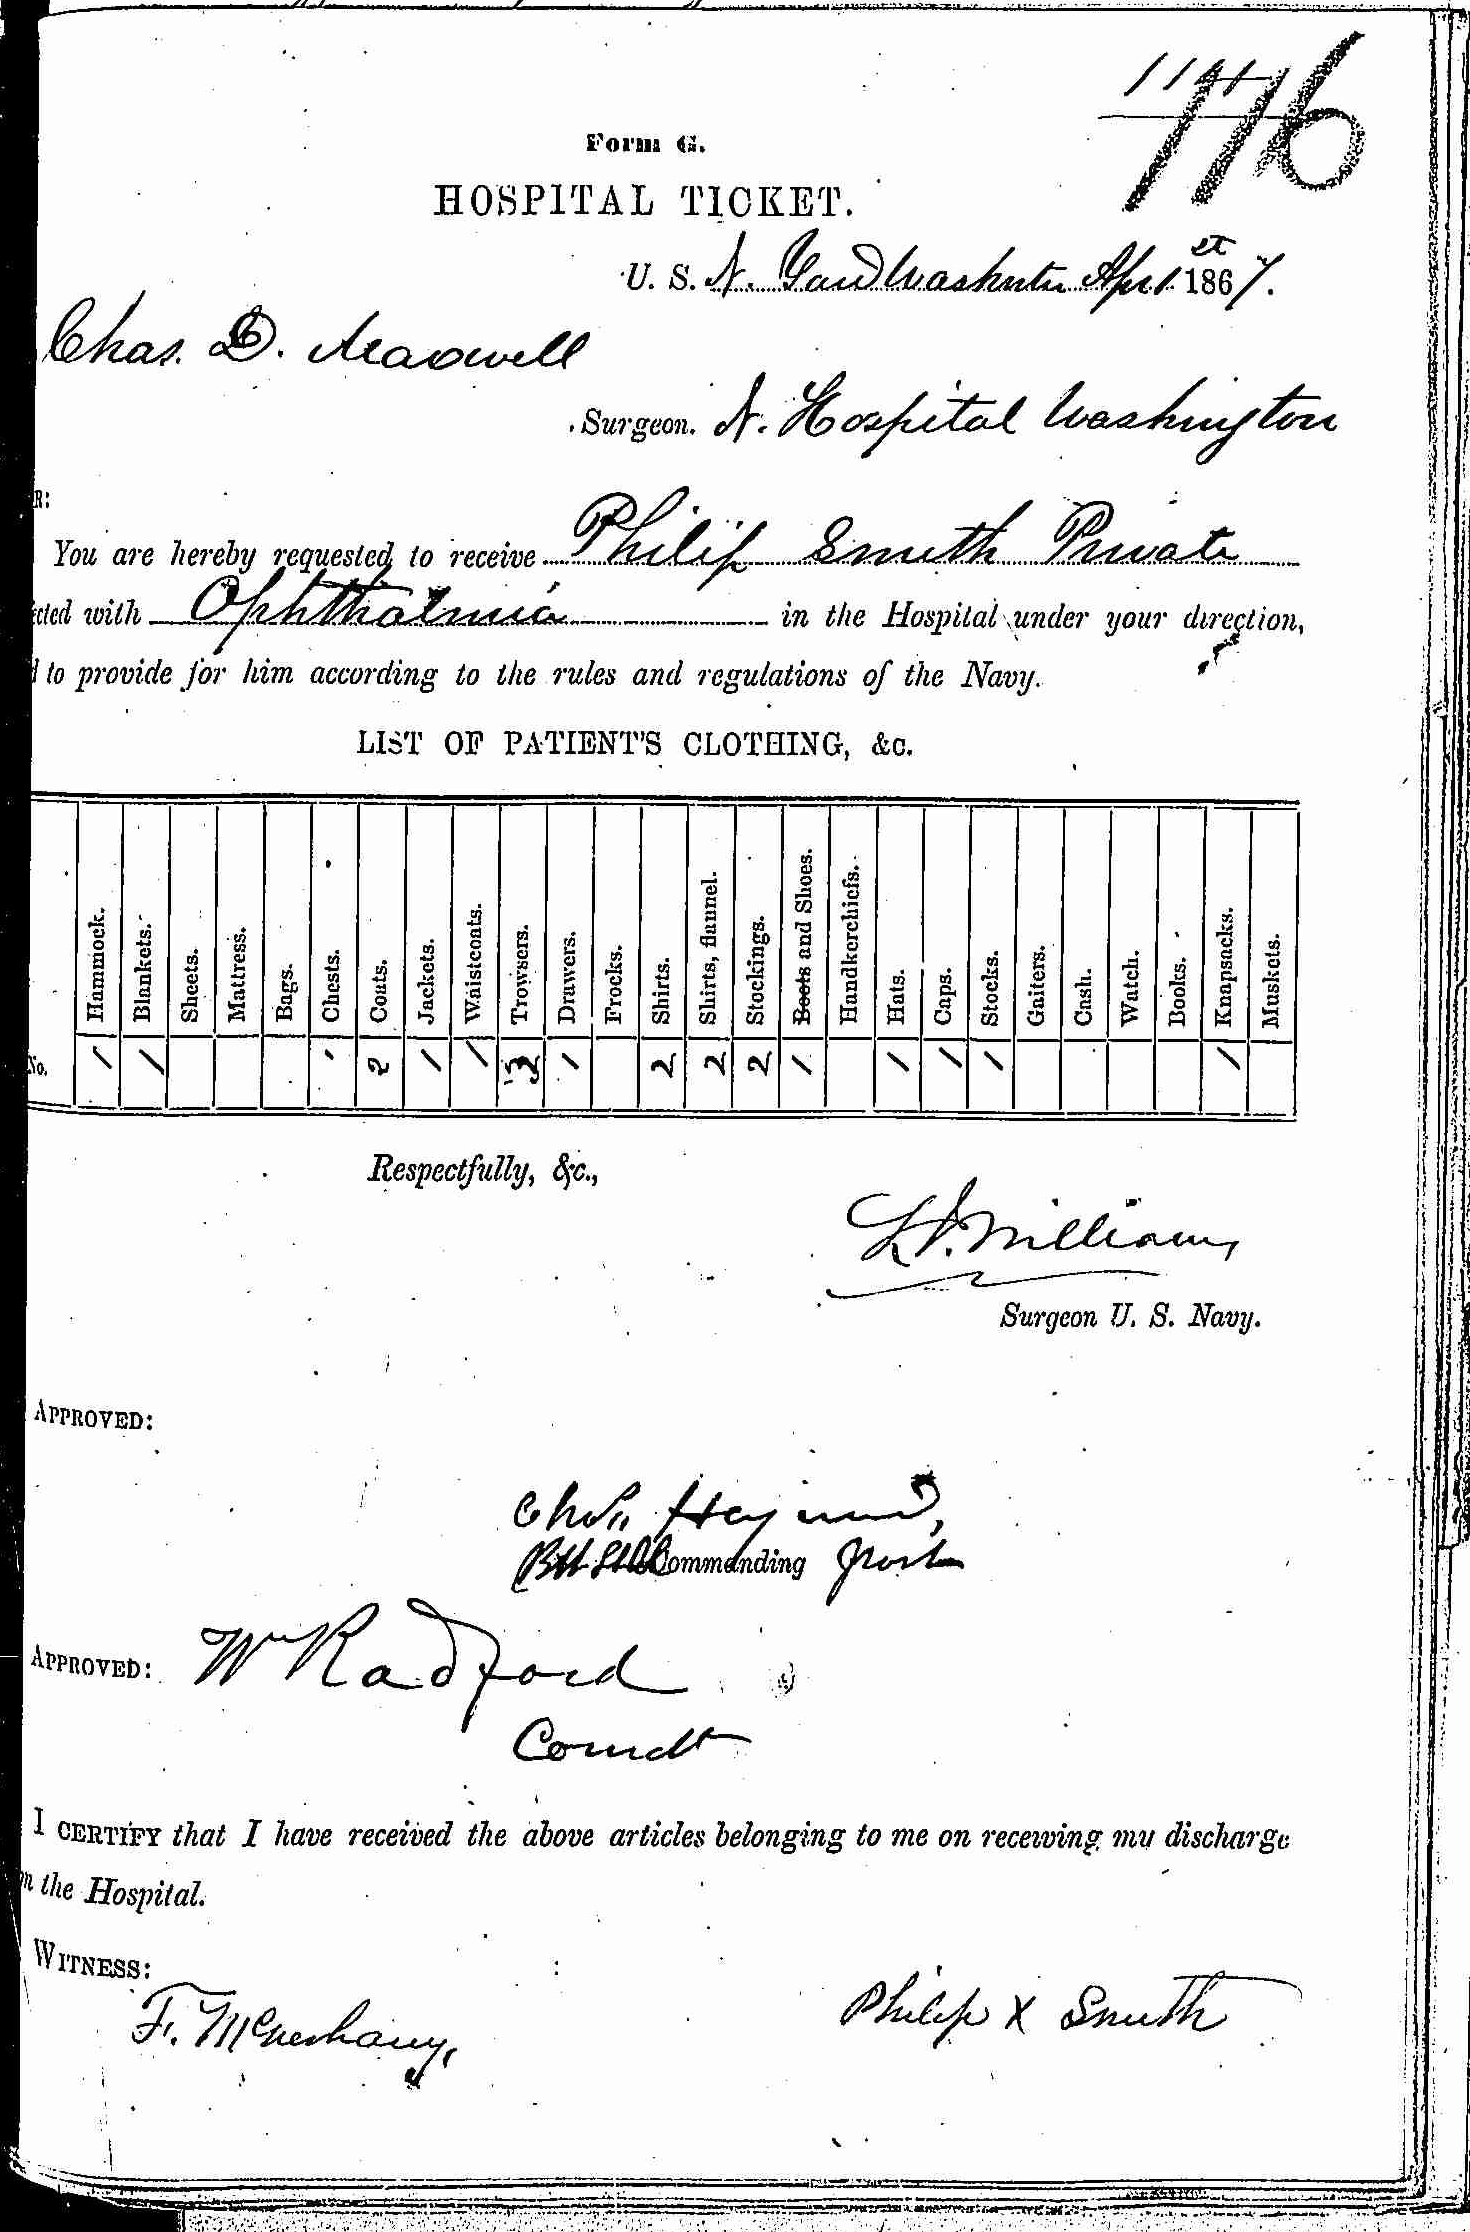 116
Form G.
HOSPITAL TICKET.
U. S. N. Yard Washntn Apr 1st 1867.
Chas. D. Maxwell
Surgeon. N. Hospital Washington
R:
You are hereby requested to receive Philip Smith Private
cted with Ophthalmia in the Hospital under your direction,
d to provide for him according to the rules and regulations of the Navy.
LIST OF PATIENT'S CLOTHING, &c.
Hammock. Blankets. Sheets. Mattress. Bags. Chests. Coats. Jackets. Waistcoats. Trowsers. Drawers. Frocks. Shirts. Shirts, flannel. Stockings. Boots and Shoes. Handkerchiefs. Hats. Caps. Stocks. Gaiters. Cash. Watch. Books. Knapsacks. Muskets.
No. 1 1 2 1 1 3 1 2 2 2 1 1 1 1 1
Respectfully, &c.,
Williams
Surgeon U. S. Navy.
APPROVED:
Chas. Heywood,
Commanding Post
APPROVED: Wm Radford
Comdt
I CERTIFY that I have received the above articles belonging to me on receiving my discharge
m the Hospital.
WITNESS:
Philip X Smith
F.